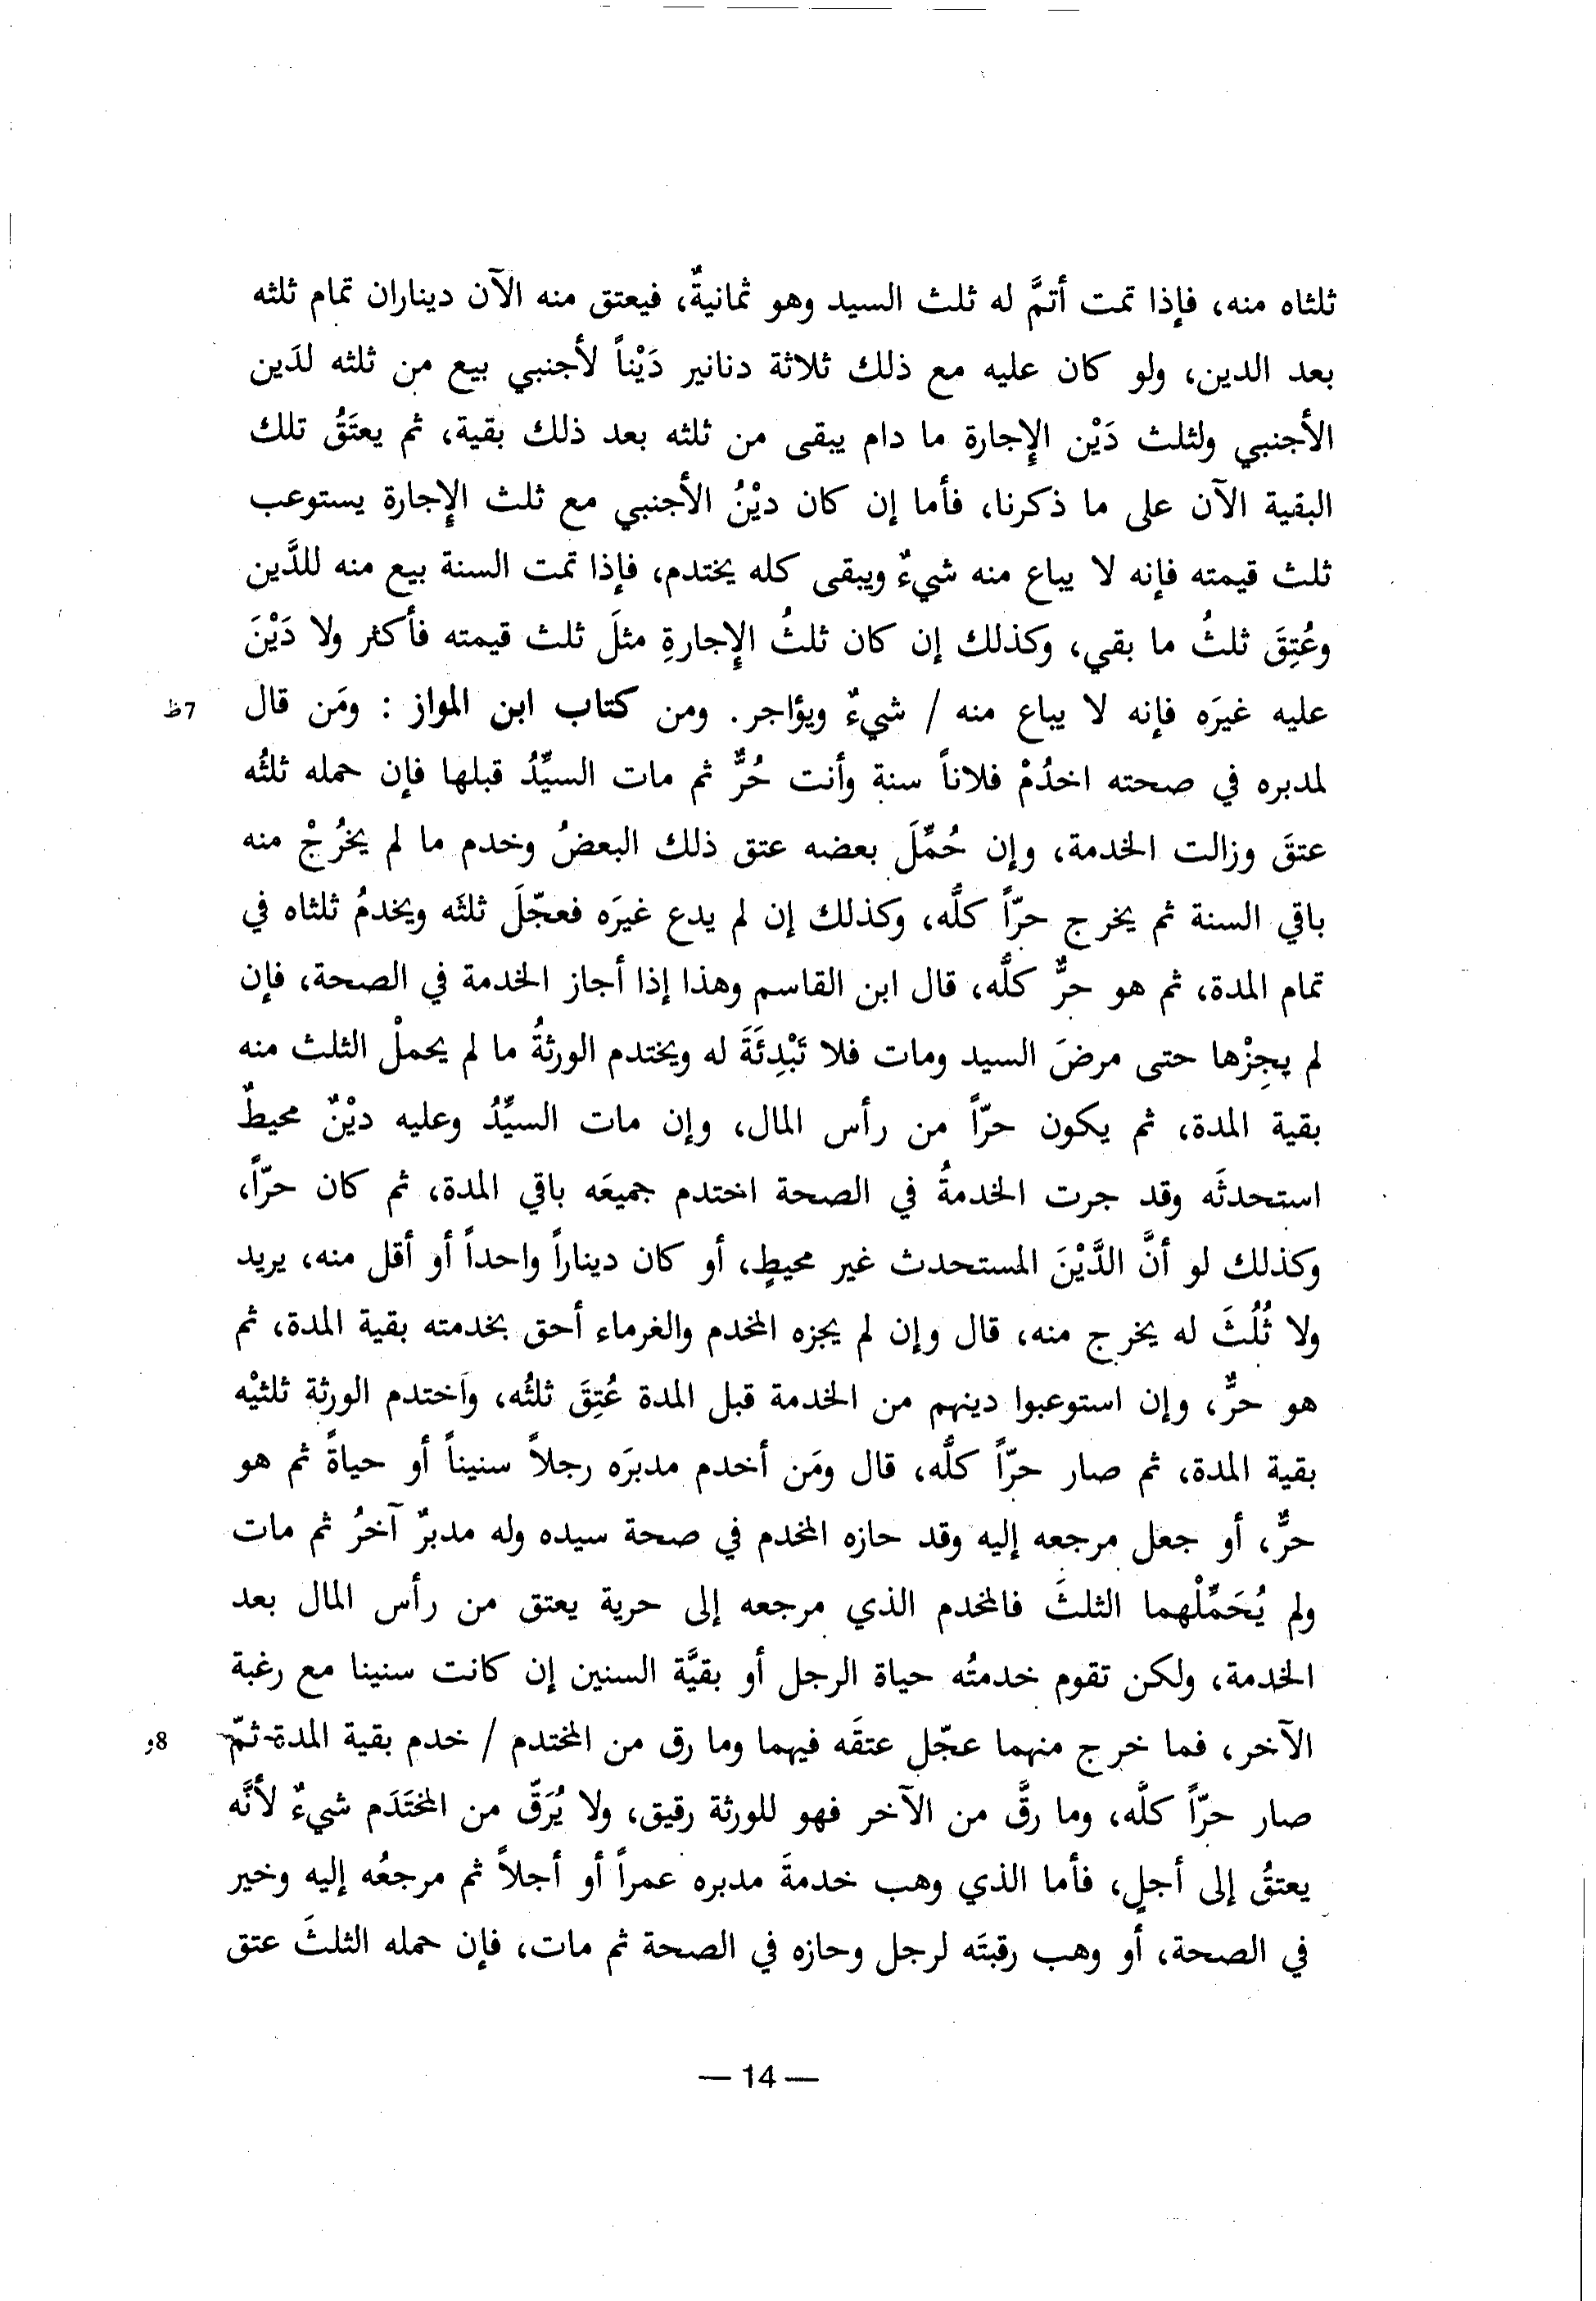 ثلثاه منه، فإذا تمت أتمَّ له ثلث السيد وهو ثمانيةٌ، فيعتق منه الآن ديناران تمام ثلثه
بعد الدين، ولو كان عليه مع ذلك ثلاثة دنانير دَيْناً لأجنبي بيع من ثلثه لدَين
الأجنبي ولثلث دَيْن الإجارة ما دام يبقى من ثلثه بعد ذلك بقية، ثم يعتَقُ تلك
البقية الآن على ما ذكرنا، فأما إن كان ديْنُ الأجنبي مع ثلث الإجارة يستوعب
ثلث قيمته فإنه لا يباع منه شيءٌ ويبقى كله يختدم، فإذا تمت السنة بيع منه للدَّين
وعُتِقَ ثلثُ ما بقي، وكذلك إن كان ثلثُ الإجارةِ مثلَ ثلث قيمته فأكثر ولا دَيْنَ
عليه غيرَه فإنه لا يباع منه / شيءٌ ويؤاجر. ومن كتاب ابن المواز : ومَن قال 7ظ
لمدبره في صحته اخدُمْ فلاناً سنة وأنت حُرٌّ ثم مات السيِّدُ قبلها فإن حمله ثلثُه
عتقَ وزالت الخدمة، وإن حُمِّلَ بعضه عتق ذلك البعضُ وخدم ما لم يخُرجْ منه
باقي السنة ثم يخرج حرّاً كلَّه، وكذلك إن لم يدع غيرَه فعجّلَ ثلثَه ويخدمُ ثلثاه في
تمام المدة، ثم هو حرٌّ كلَّه، قال ابن القاسم وهذا إذا أجاز الخدمة في الصحة، فإن
لم يجِزْها حتى مرضَ السيد ومات فلا تَبْدِئَةَ له ويختدم الورثةُ ما لم يحملْ الثلث منه
بقية المدة، ثم يكون حرّاً من رأس المال، وإن مات السيِّدُ وعليه ديْنٌ محيطٌ
استحدثَه وقد جرت الخدمةُ في الصحة اختدم جميعَه باقي المدة، ثم كان حرّاً،
وكذلك لو أنَّ الدَّيْنَ المستحدث غير محيطٍ، أو كان ديناراً واحداً أو أقل منه، يريد
ولا ثُلُثَ له يخرج منه، قال وإن لم يجزه المخدم والغرماء أحق بخدمته بقية المدة، ثم
هو حرٌّ، وإن استوعبوا دينهم من الخدمة قبل المدة عُتِقَ ثلثُه، واختدم الورثة ثلثيْه
بقية المدة، ثم صار حرّاً كلَّه، قال ومَن أخدم مدبرَه رجلاً سنيناً أو حياةً ثم هو
حرٌّ، أو جعل مرجعه إليه وقد حازه المخدم في صحة سيده وله مدبرٌ آخرُ ثم مات
ولم يُحَمِّلْهما الثلثَ فالمخدم الذي مرجعه إلى حرية يعتق من رأس المال بعد
الخدمة، ولكن تقوم خدمتُه حياة الرجل أو بقيَّة السنين إن كانت سنينا مع رغبة
الآخر، فما خرج منهما عجّل عتقَه فيهما وما رق من المختدم / خدم بقية المدة ثمّ 8و
صار حرّاً كلَّه، وما رقَّ من الآخر فهو للورثة رقيق، ولا يُرَقّ من المختَدَم شيءٌ لأنَّه
يعتقُ إلى أجلٍ، فأما الذي وهب خدمةَ مدبره عمراً أو أجلاً ثم مرجعُه إليه وخير
في الصحة، أو وهب رقبتَه لرجل وحازه في الصحة ثم مات، فإن حمله الثلثَ عتق
— 14 —